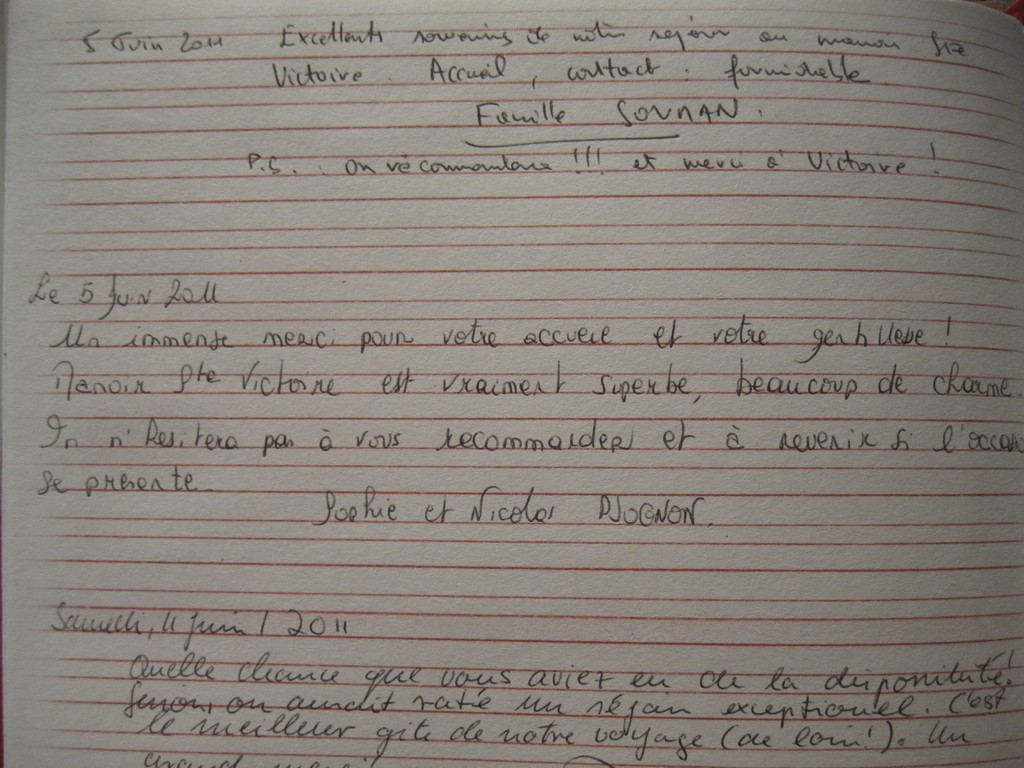 5 Juin 2011 Excellents souvenirs de notre séjour au manoir Ste
Victoire. Accueil, contact : formidable
Famille
P.S. : On recommandera !!! et merci à Victoire !
Le 5 Juin 2011
Un immense merci pour votre accueil et votre gentillesse !
Manoir Ste Victoire est vraiment superbe, beaucoup de charme.
On n'hésitera pas à vous recommander et à revenir si l'occas
se présente
Sophie et Nicolas
Samedi, 4 juin / 2011
Quelle chance que vous aviez eu de la disponibilité !
Sinon, on aurait raté un séjour exceptionnel. C'est
le meilleur gîte de notre voyage (de loin !). Un
grand merci